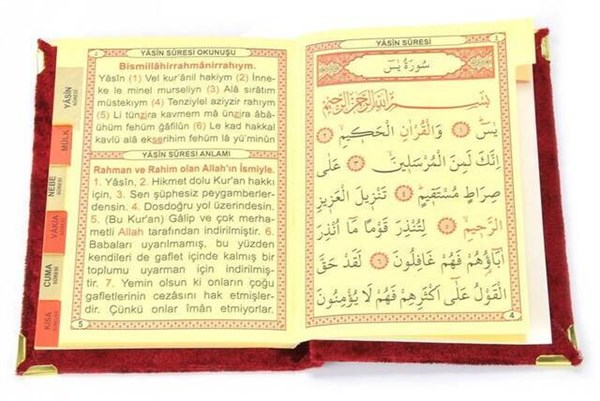 YÂSİN SÛRESİ OKUNUŞU
Bismillâhirrahmânirrahıym.
Yâsîn (1) Vel kur'ânil hakiym (2) İnne-
ke le minel murseliyn (3) Alâ sırâtım
müstekıym (4) Tenziylel aziyzir rahıym
(5) Li tünzira kavmem mâ ünzira âbâ-
ühüm fehüm ğâfilûn (6) Le kad hakkal
kavlü alâ ekserihim fehüm lâ yü'minûn
YÂSİN SÛRESİ ANLAMI
Rahman ve Rahim olan Allah'ın İsmiyle.
1. Yâsîn, 2. Hikmet dolu Kur'an hakkı
için, 3. Sen şüphesiz peygamberler-
densin. 4. Dosdoğru yol üzerindesin.
5. (Bu Kur'an) Gâlip ve çok merha-
metli Allah tarafından indirilmiştir. 6.
Babaları uyarılmamış, bu yüzden
kendileri de gaflet içinde kalmış bir
toplumu uyarman için indirilmiş-
tir. 7. Yemin olsun ki onların çoğu
gafletlerinin cezasını hak etmişler-
dir. Çünkü onlar îmân etmiyorlar.
5
YÂSİN
SÛRESİ
MÜLK
SÛRESİ
NEBE
SÛRESİ
VAKIA
SÛRESİ
CUMA
SÛRESİ
KISA
YÂSİN SÛRESİ
سُورَةُ يٰسٓ
بِسْمِ اللّٰهِ الرَّحْمٰنِ الرَّحِيمِ
يٰسٓ ﴿١﴾ وَالْقُرْاٰنِ الْحَكِيمِ ﴿٢﴾
اِنَّكَ لَمِنَ الْمُرْسَلِينَ ﴿٣﴾ عَلٰى
صِرَاطٍ مُسْتَقِيمٍ ﴿٤﴾ تَنْزِيلَ الْعَزِيزِ
الرَّحِيمِ ﴿٥﴾ لِتُنْذِرَ قَوْمًا مَٓا اُنْذِرَ
اٰبَٓاؤُهُمْ فَهُمْ غَافِلُونَ ﴿٦﴾ لَقَدْ حَقَّ
الْقَوْلُ عَلٰٓى اَكْثَرِهِمْ فَهُمْ لَا يُؤْمِنُونَ
4